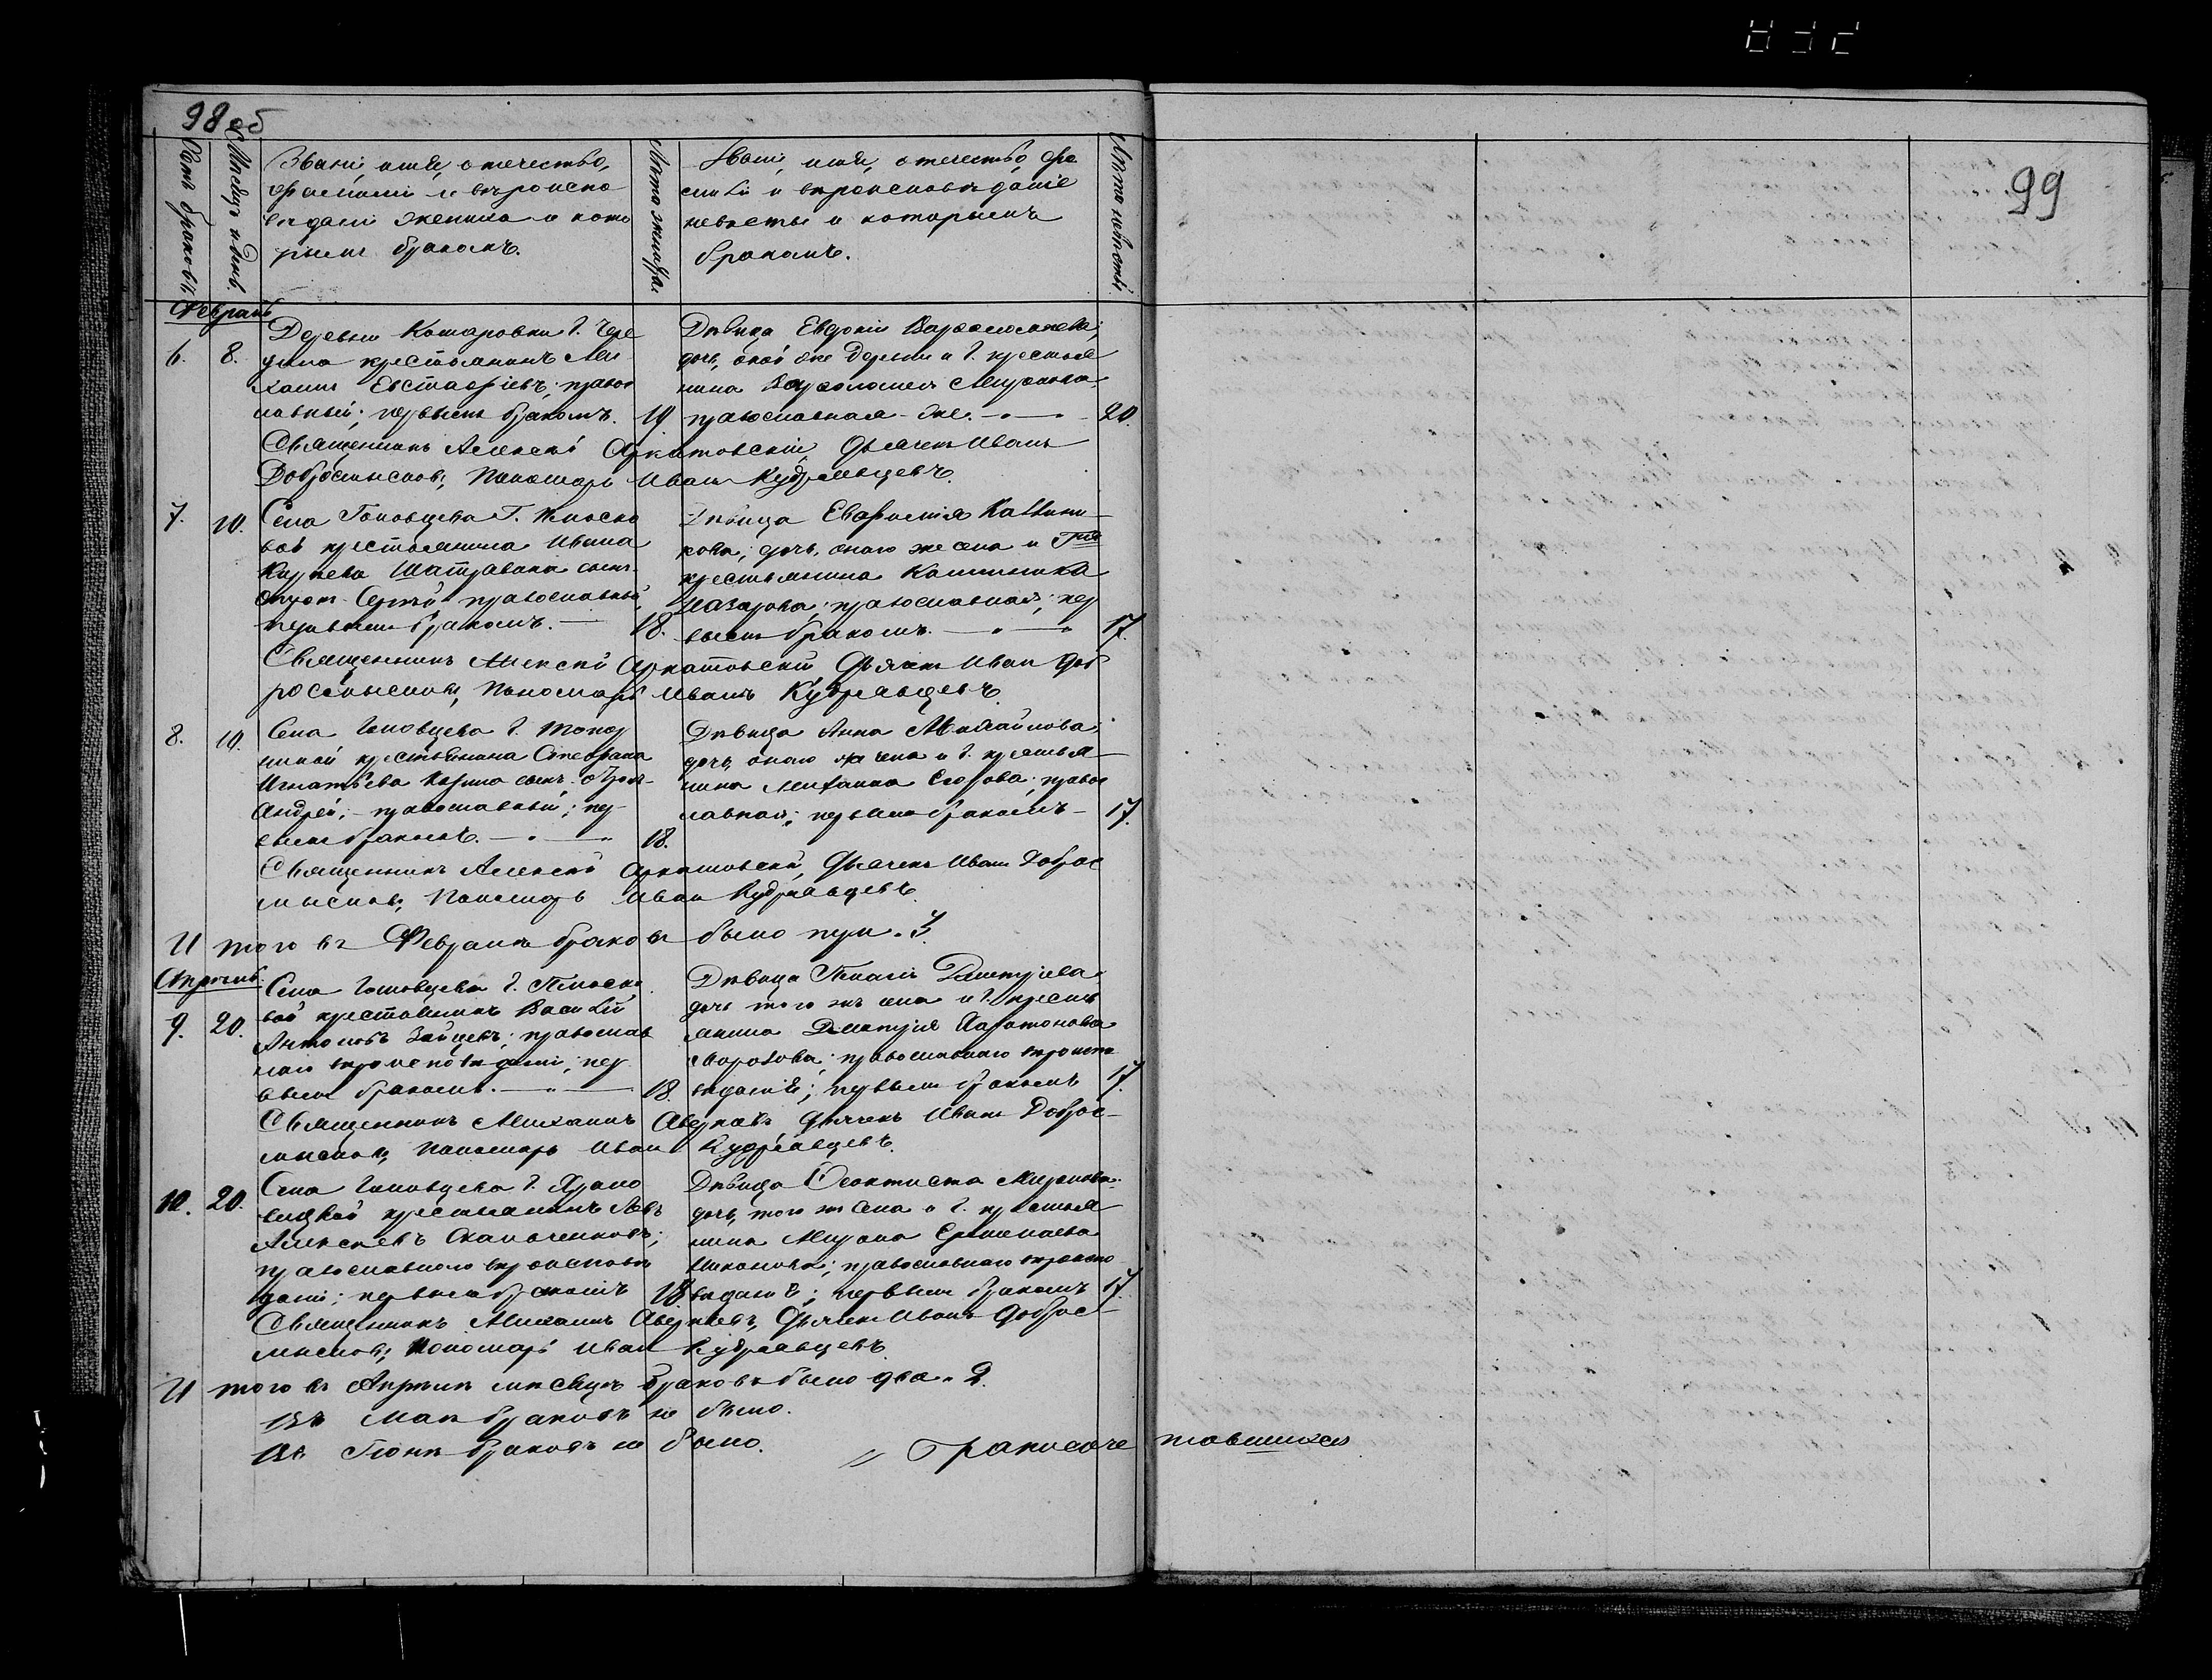 98 об
99
Счетъ браковъ.
Месяцъ и день.
Званіе, имя, отчество,
фамилія и вѣроиспо
вѣданіе жениха и кото
рымъ бракомъ.
Лѣта жениха.
Званіе, имя, отчество, фа
милія и вѣроисповѣданіе
невѣсты и которымъ
бракомъ.
Лѣта невѣсты.
Февраль
6. 8.
Деревни Комаровки Г.
крестьянинъ Ми
хаилъ Евстафіевъ; правос
лавный; первымъ бракомъ. 19.
Дѣвица Евдокія Варфоломеева;
дочь, оной же деревни и Г. крестья
нина Варфоломея Миронова
православная - же. 20.
Священникъ Алексѣй Аркатовскій, Дьячекъ Иванъ
Добросмысловъ, Пономарь Иванъ Кудрявцевъ.
7. 10.
Села Головцева Г. Плоско
вой крестьянина Ивана
Карпева сынъ
отрокъ Сергѣй православный,
первымъ бракомъ. 18.
Дѣвица Евфимія Каллини
кова; дочь, онаго же села и Г-жи
крестьянина Каллиника
Назарова; православная; пер
вымъ бракомъ. 17.
Священникъ Алексѣй Аркатовскій Дьячекъ Иван Доб
росмысловъ, Пономарь Иванъ Кудрявцевъ.
8. 10.
Села Головцева Г.
крестьянина Стефана
Игнатьева сынъ отрокъ
Андрей; православный; пер
вымъ бракомъ. 18.
Дѣвица Анна Михайлова;
дочь, онаго же села и Г. крестья
нина Михаила Егорова; правос
лавная; первымъ бракомъ 17.
Священникъ Алексѣй Аркатовскій, Дьячекъ Иванъ Доброс
мысловъ, Пономарь Иван Кудрявцевъ.
И того въ Февралѣ браковъ было три. 3.
Апрель.
9. 20.
Села Головцева Г. Плоско
вой крестьянинъ Василій
Антоновъ Зайцевъ; православ
наго вѣроисповѣданія; пер
вымъ бракомъ. 18.
Дѣвица Пелагія Дмитріева
дочь того жъ села и Г. кресть
янина Дмитрія Харитонова
Морозова; православнаго вѣроиспо
вѣданія; первымъ бракомъ 17.
Священникъ Михаилъ Аверкіевъ Дьячекъ Иванъ Доброс
мысловъ, Пономарь Иван Кудрявцевъ.
10. 20.
Села Головцева Г.
крестьянинъ Левъ
Алексѣевъ
православнаго вѣроисповѣ
данія; первымъ бракомъ 18
Дѣвица Феоктиста Миронова
дочь, того жъ села и Г. крестья
нина Мирона Ермолаева
православнаго вѣроиспо
вѣданія; первымъ бракомъ 17.
Священникъ Михаилъ Аверкіевъ, Дьячекъ Иванъ Доброс
мысловъ, Пономарь Иван Кудрявцевъ
И того въ Апрѣлѣ месяцѣ браковъ было два. 2.
Въ Маѣ браковъ не было.
Въ Іюнѣ браковъ не было.
// Бракосоче тавшихся